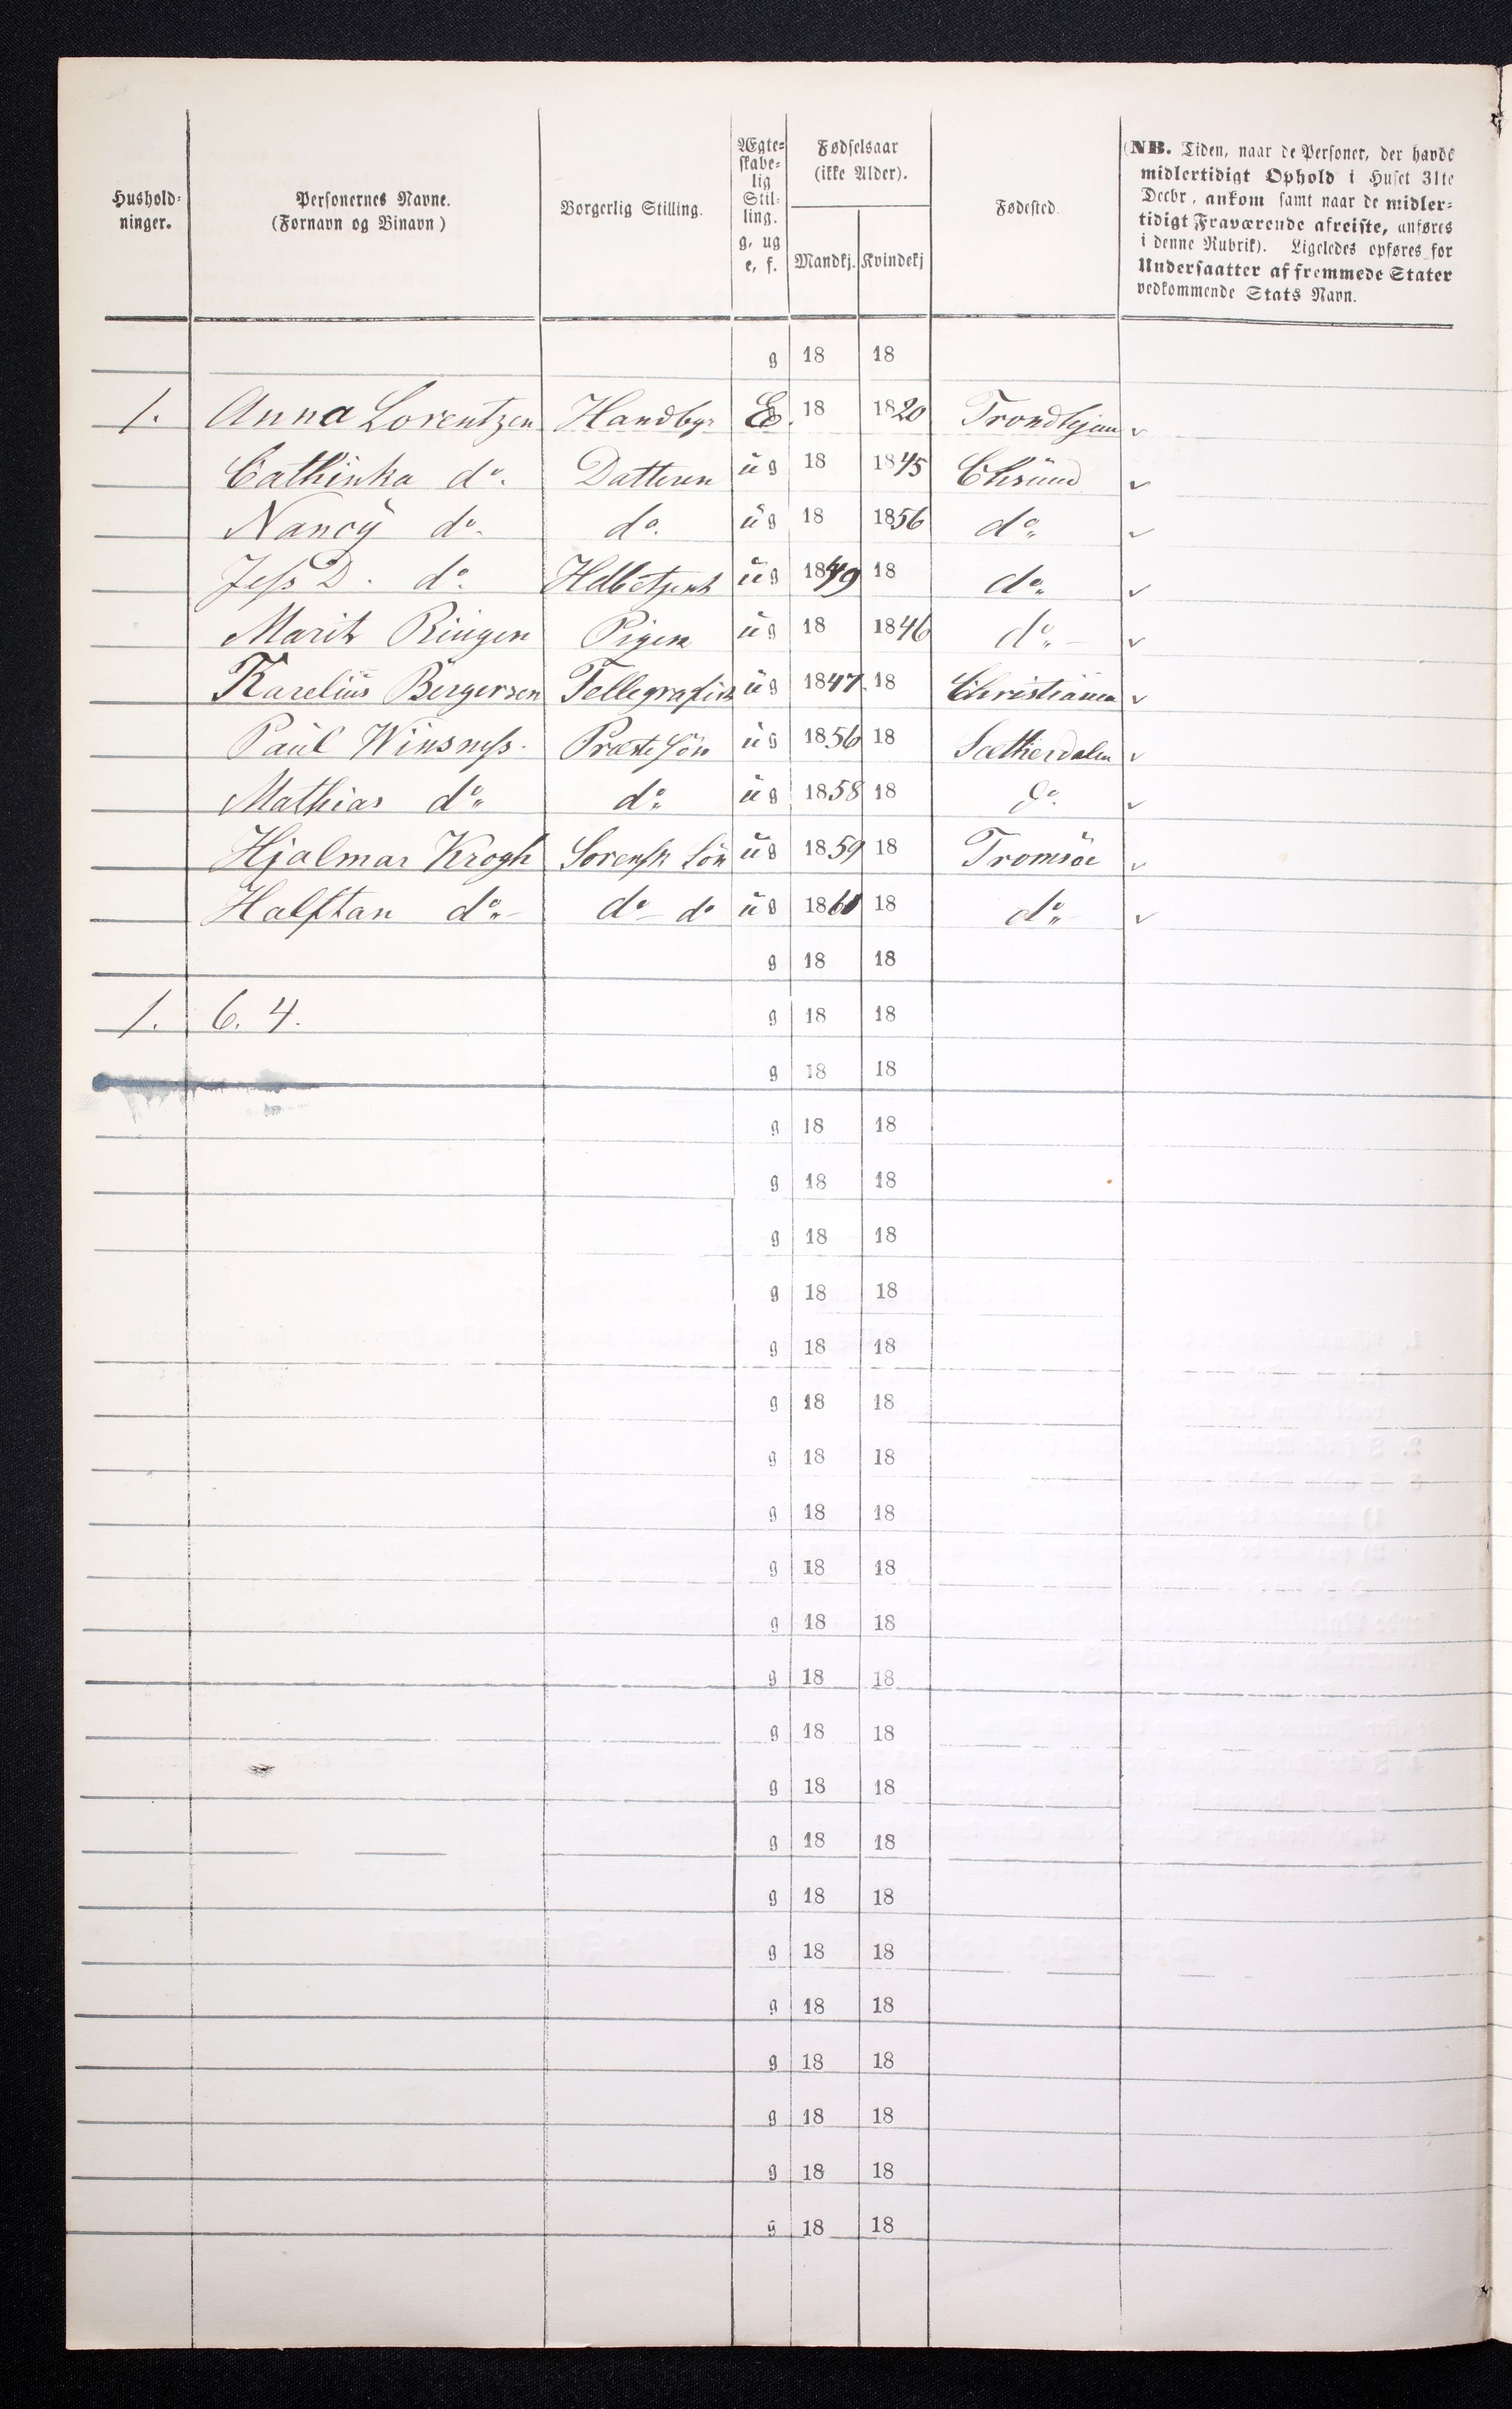 Hushold-
ninger.
Personernes Navne.
(Fornavn og Binavn)
Borgerlig Stilling.
Ægte-
skabe-
lig
Stil-
ling.
g, ug
e, f.
Fødselsaar
(ikke Alder).
Mandkj. Kvindekj
Fødested.
(NB. Tiden, naar de Personer, der havde
midlertidigt Ophold i Huset 31te
Decbr, ankom samt naar de midler-
tidigt Fraværende afreiste, anføres
i denne Rubrik). Ligeledes opføres for
Undersaatter af fremmede Stater
vedkommende Stats Navn.
g 18 18
1. Anna Lorentzen Handbgr E. 18 1820 Trondhjem
Cathinka do. Datteren ug 18 1845 Chsund
Nancy do. do. ug 18 1856 do
Jess D. do. ug 1849 18 do
Marit Ringen Pigen ug 18 1846 do
Karelius Bergersen Tellegrafist ug 1847. 18 Christiania
Paul Winsness. Præste Sön ug 1856 18 Sætherdalen
Mathias do do ug 1858 18 do.
Hjalmar Krogh Sorensk Sön ug 1859 18 Tromsöe
Halftan do do do ug 1860 18 do
g 18 18
1. 6. 4. g 18 18
g 18 18
g 18 18
g 18 18
g 18 18
g 18 18
g 18 18
g 18 18
g 18 18
g 18 18
g 18 18
g 18 18
g 18 18
g 18 18
g 18 18
g 18 18
g 18 18
g 18 18
g 18 18
g 18 18
g 18 18
g 18 18
g 18 18